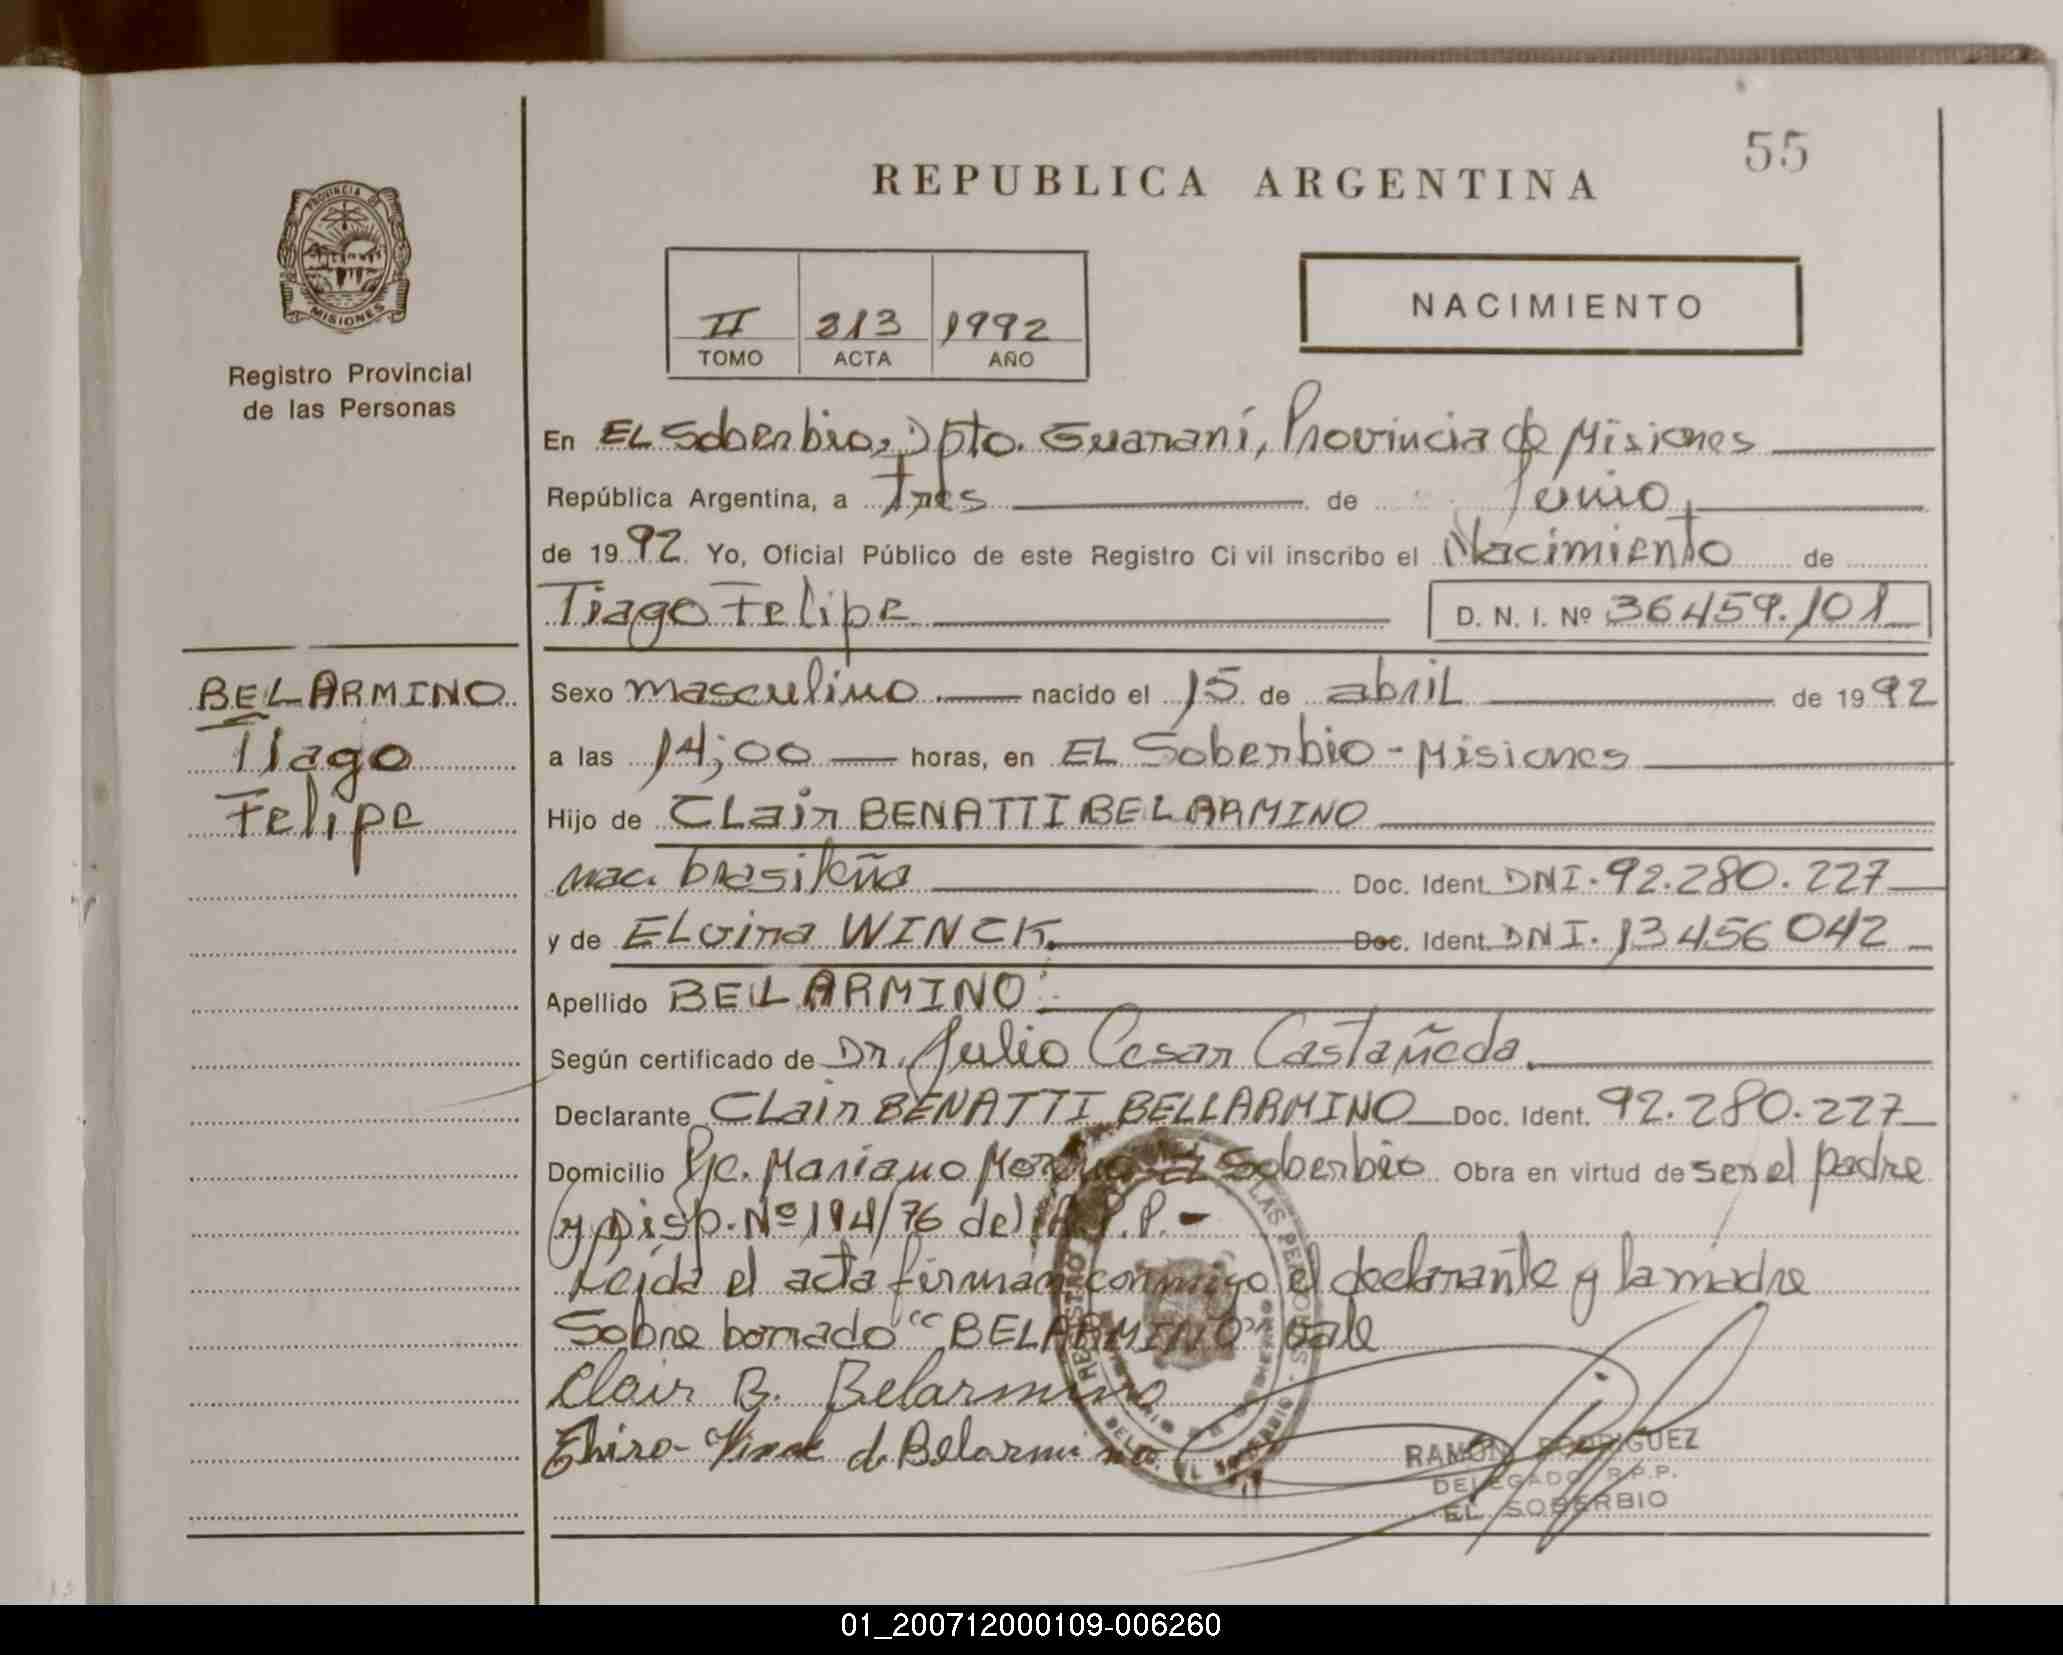 55
REPUBLICA ARGENTINA
PROVINCIA DE
MISIONES
Registro Provincial
de las Personas
II 213 1992
TOMO ACTA AÑO
NACIMIENTO
En EL Soberbio, Dpto. Guaraní, Provincia de Misiones
República Argentina, a tres de Junio
de 1992 Yo, Oficial Público de este Registro Ci vil inscribo el Nacimiento de
Tiago Felipe D. N. I. Nº 36459.101
BELARMINO
Tiago
Felipe
Sexo masculino. nacido el 15 de abril de 1992
a las 14;00 horas, en EL Soberbio - Misiones
Hijo de CLair BENATTI BELARMINO
nac. brasileña Doc. Ident. DNI. 92.280.227
y de ELvira WINCK. Doc. Ident. DNI. 13456042
Apellido BELARMINO
Según certificado de Dr. Julio Cesar Castañeda.
Declarante CLair BENATTI BELLARMINO Doc. Ident. 92.280.227
Domicilio Pje. Mariano Moreno EL Soberbio Obra en virtud de ser el padre
y Disp. Nº 194/76 del R.P.P. -
Leida el acta firman conmigo el declarante y la madre
Sobre borrado "BELARMINO" vale
Clair B. Belarmino
d Belarmino
RAMÓN RODRIGUEZ
DELEGADO R.P.P.
EL SOBERBIO
01_200712000109-006260